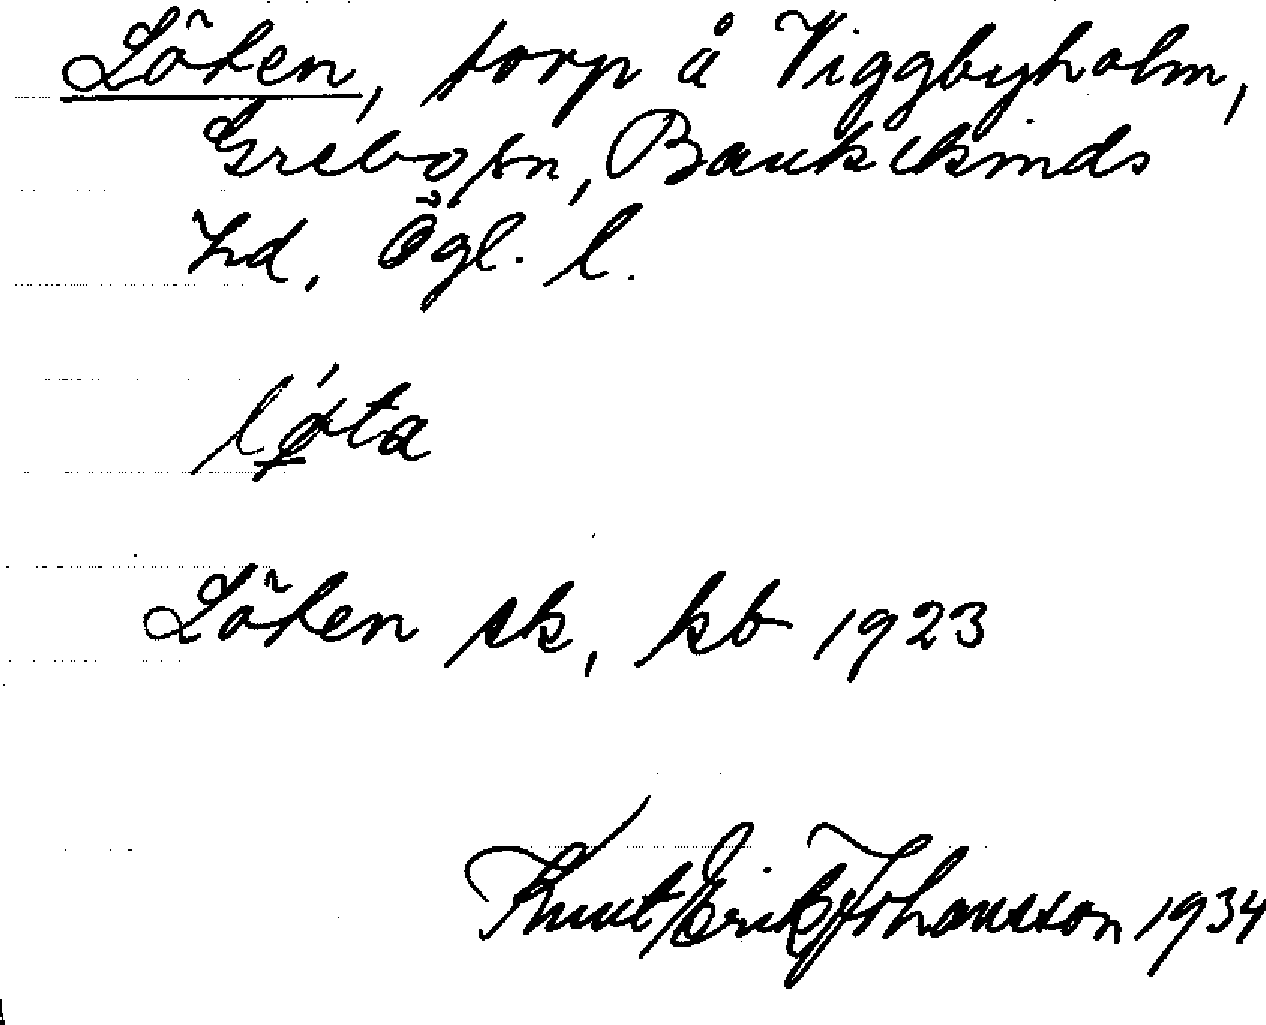 Löten, torp å Viggbyholm,
Grebo sn, Bankekinds
hd, Ögl. l.
lø̀ta
Löten sk, kb 1923
Knut Erik Johansson 1934